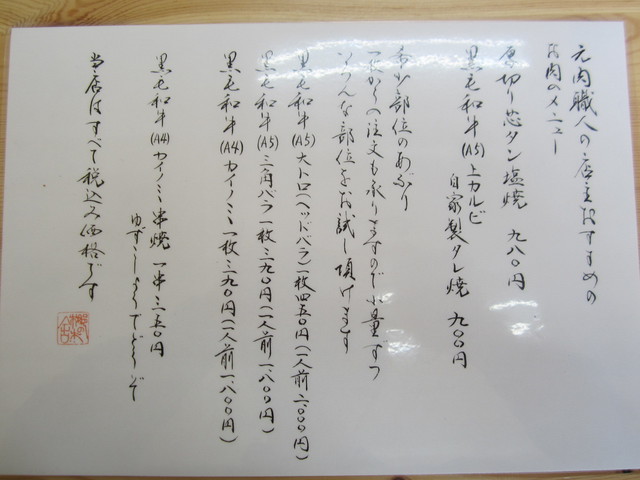 元肉職人の店主おすすめの
お肉のメニュー
厚切り芯タン塩焼 九八〇円
黒毛和牛(A5)上カルビ
自家製タレ焼 九〇〇円
希少部位のあぶり
一枚からの注文も承りますので少量ずつ
いろんな部位をお試し頂けます
黒毛和牛(A5)大トロ(ヘッドバラ)一枚四五〇円(一人前二、〇〇〇円)
黒毛和牛(A5)三角バラ一枚三九〇円(一人前一、八〇〇円)
黒毛和牛(A4)カイノミ一枚三九〇円(一人前一、八〇〇円)
黒毛和牛(A4)カイノミ串焼 一本三五〇円
ゆずこしょうでどうぞ
当店はすべて税込み価格です